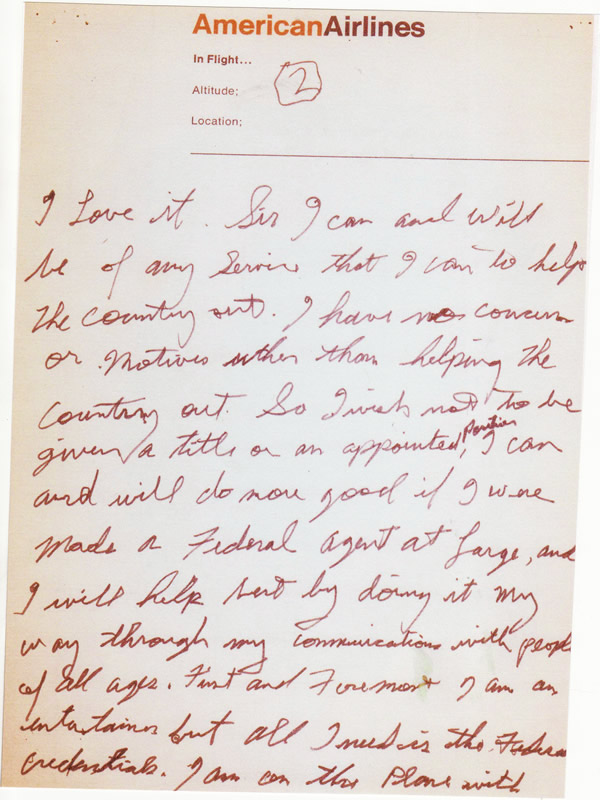 AmericanAirlines
In Flight...
Altitude; 2
Location;
I Love it. Sir I can and will
be of any Service that I can to help
the country out. I have no concern
or Motives other than helping the
country out. So I wish not to be
given a title or an appointed, position I can
and will do more good if I were
made a Federal Agent at Large, and
I will help best by doing it my
way through my communications with people
of all ages. First and Foremost I am an
entertainer but all I need is the Federal
credentials. I am on the Plane with